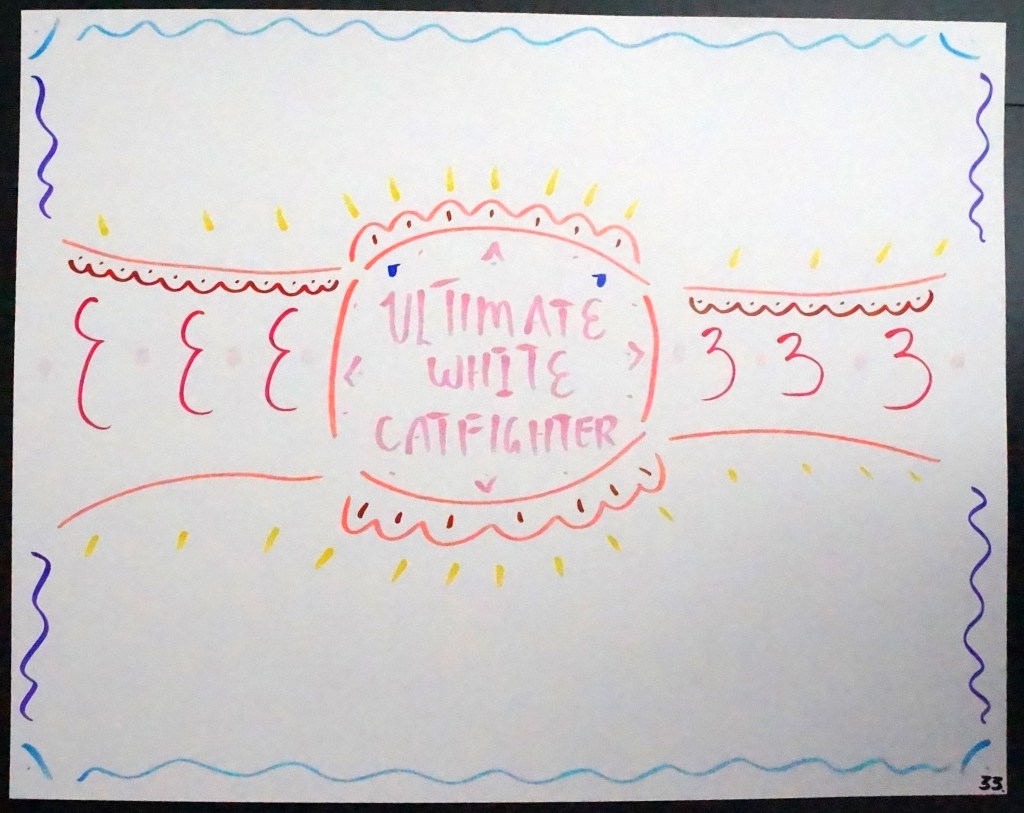 ULTIMATE
WHITE
CATFIGHTER
33